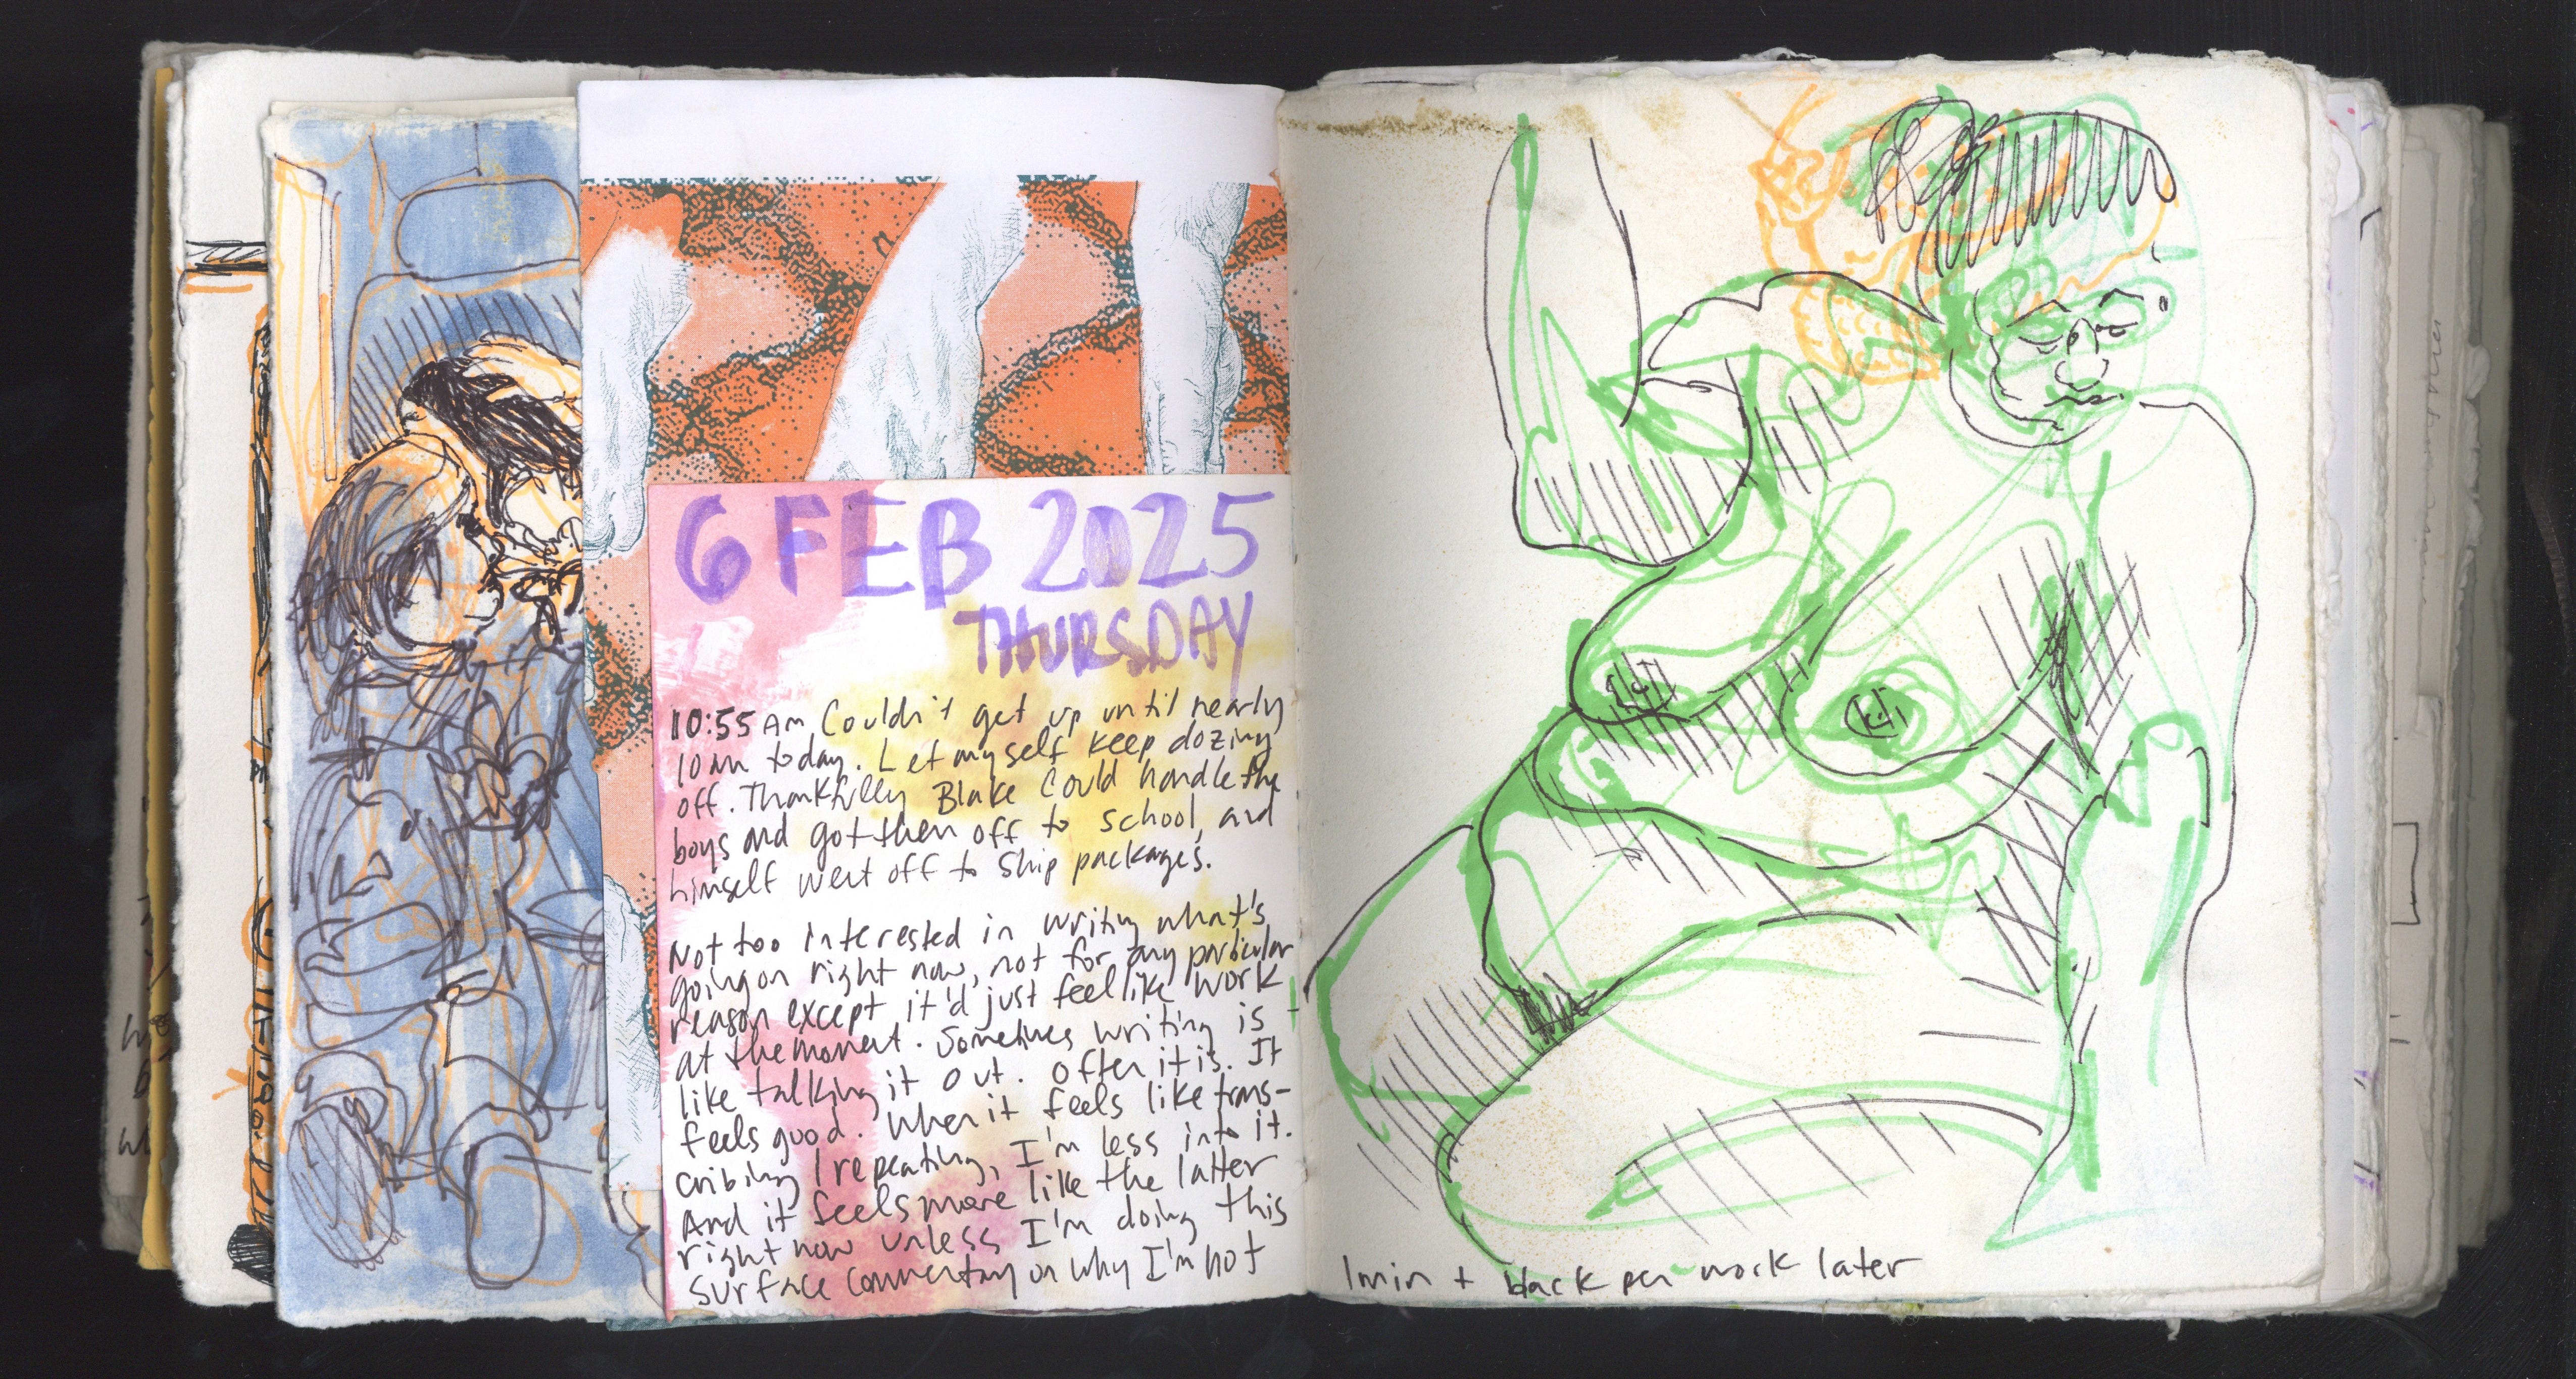 6 FEB 2025
THURSDAY
10:55 Am Couldn't get up until nearly
10am today. Let myself keep dozing
off. Thankfully Blake could handle the
boys and got them off to school, and
himself went off to ship packages.
Not too interested in writing what's
going on right now, not for any particular
reason except it'd just feel like work
at the moment. Sometimes writing is
like talking it out. Often it is. It
feels good. When it feels like trans-
cribing / repeating, I'm less into it.
And it feels more like the latter
right now unless I'm doing this
surface commentary on why I'm not
1min + black pen work later